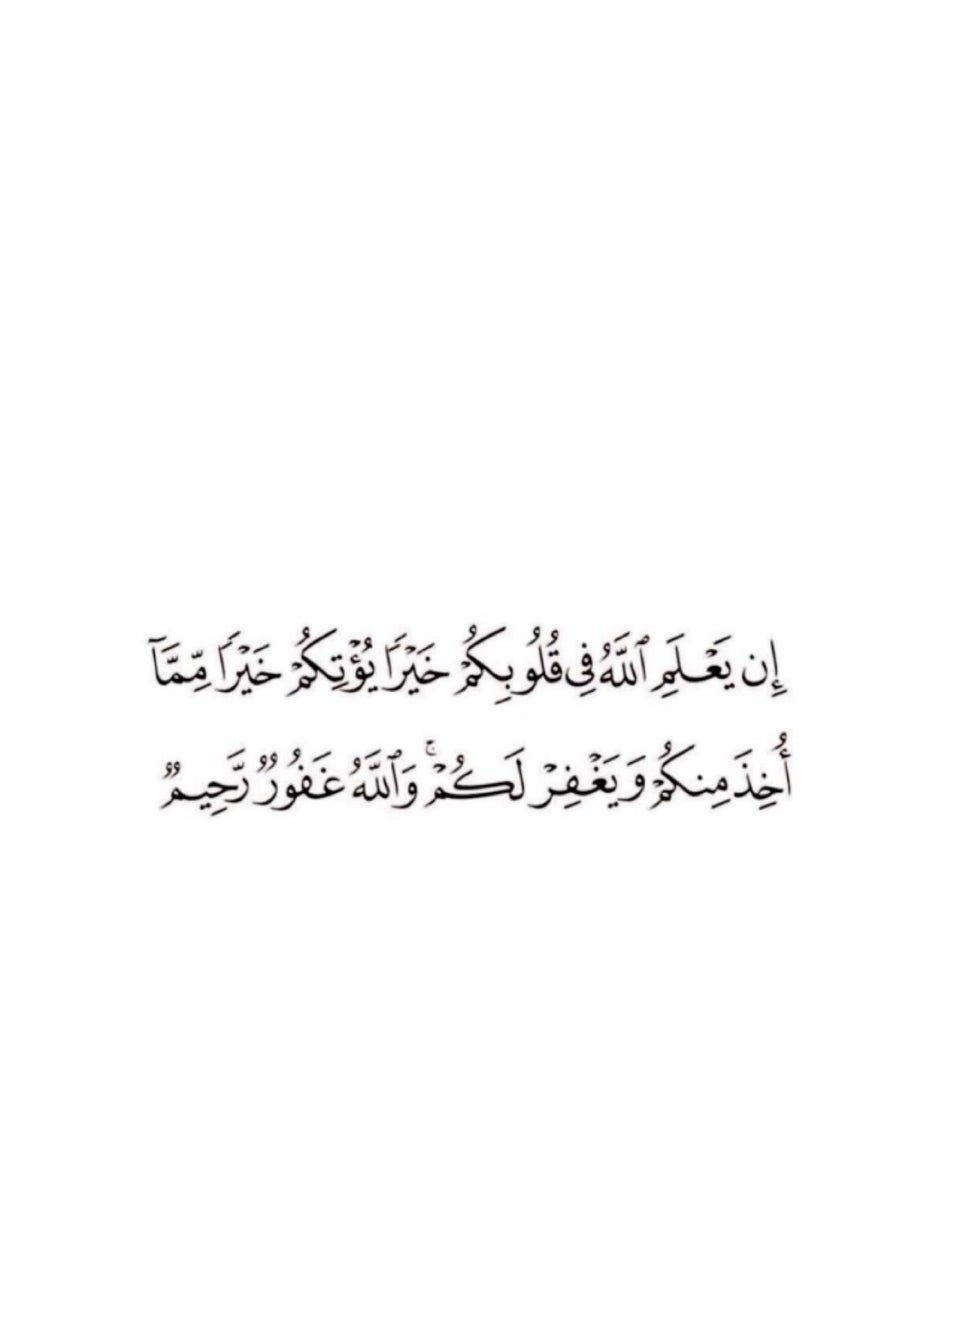 إِن يَعۡلَمِ ٱللَّهُ فِي قُلُوبِكُمۡ خَيۡرٗا يُؤۡتِكُمۡ خَيۡرٗا مِّمَّآ
أُخِذَ مِنكُمۡ وَيَغۡفِرۡ لَكُمۡۚ وَٱللَّهُ غَفُورٞ رَّحِيمٞ